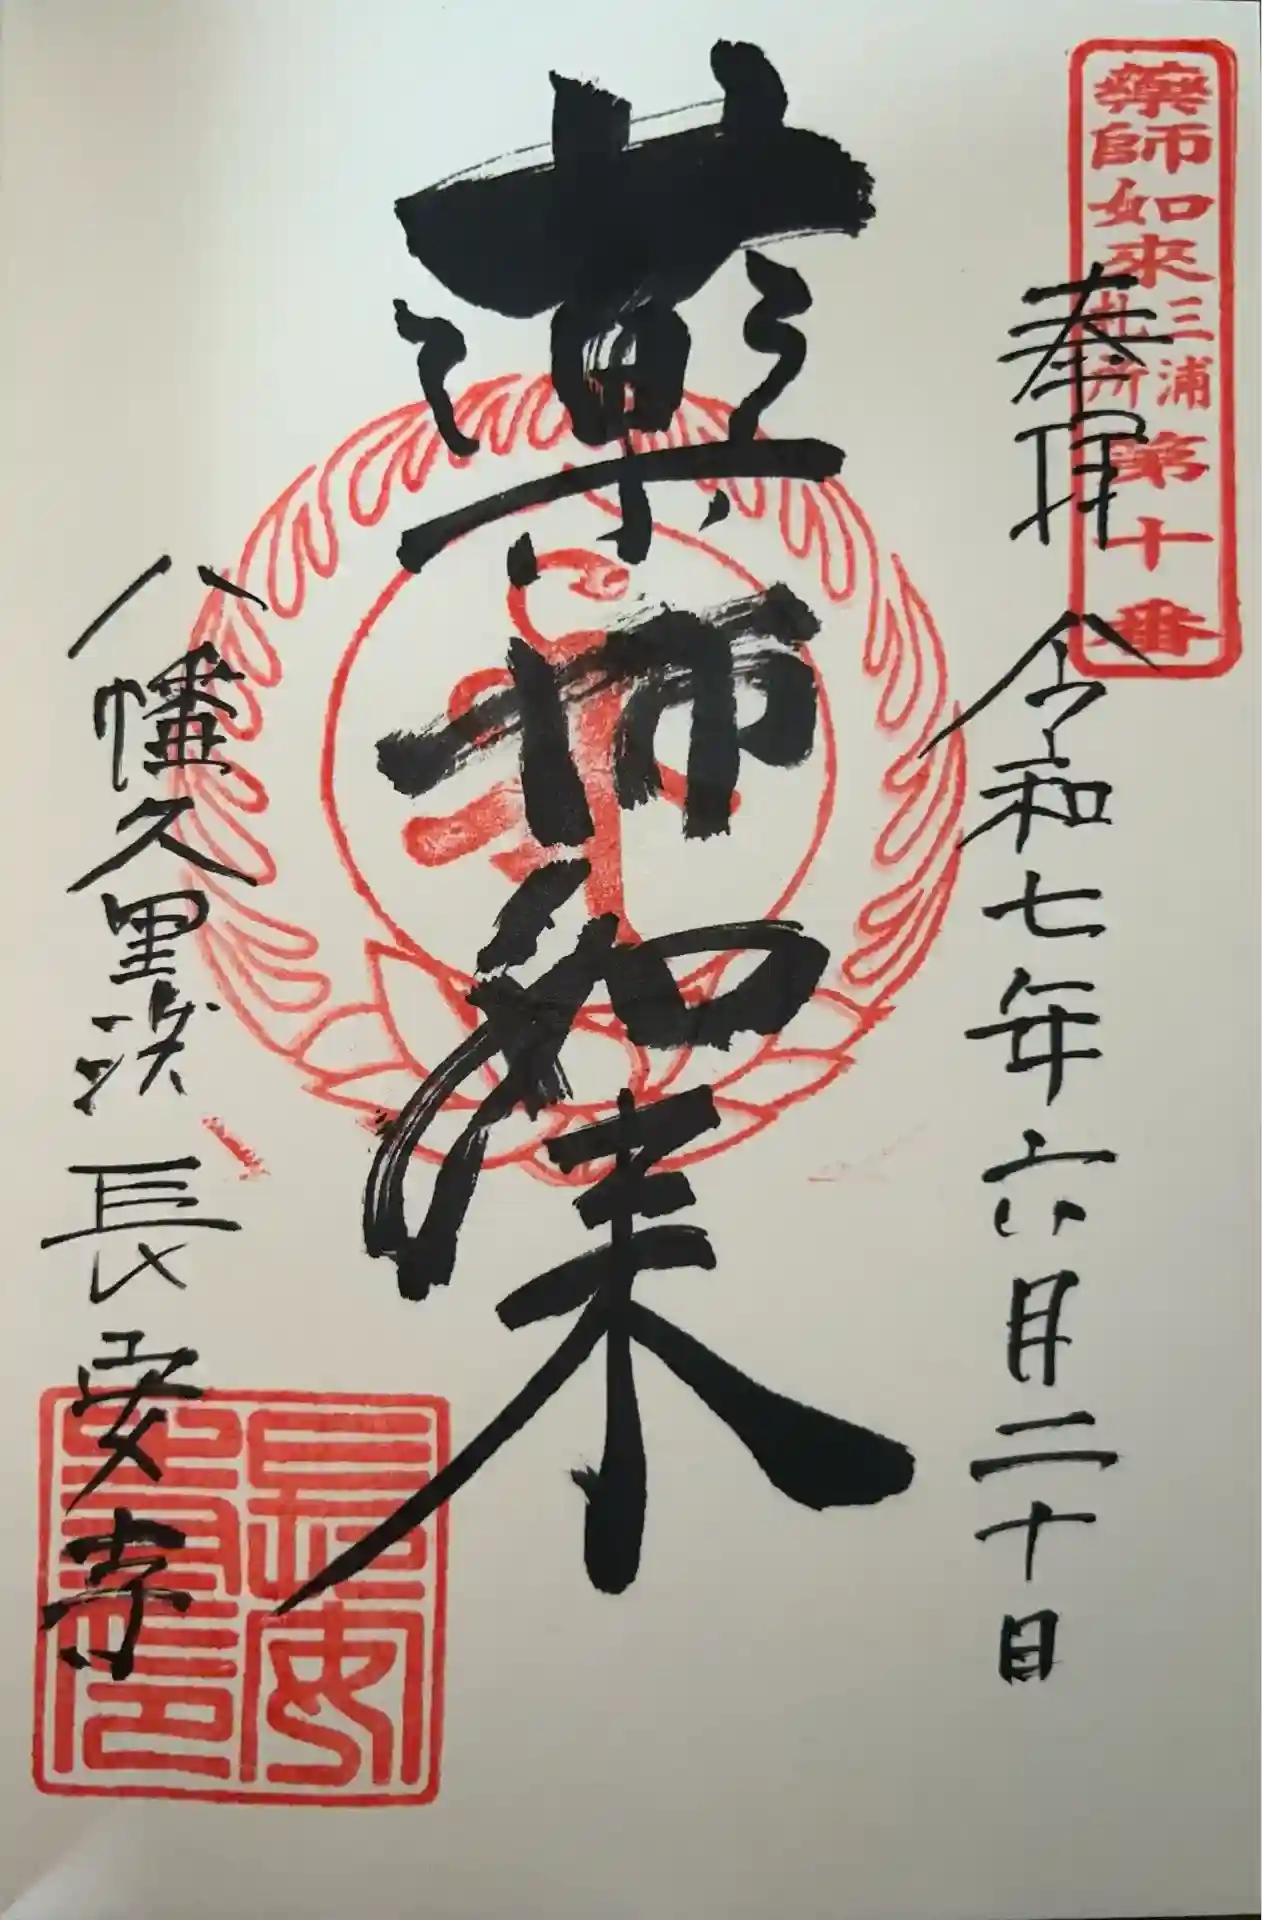 藥師如來三浦札所第十番
奉拝 令和七年六月二十日
薬師如来
八幡久里浜 長安寺
長安寺印